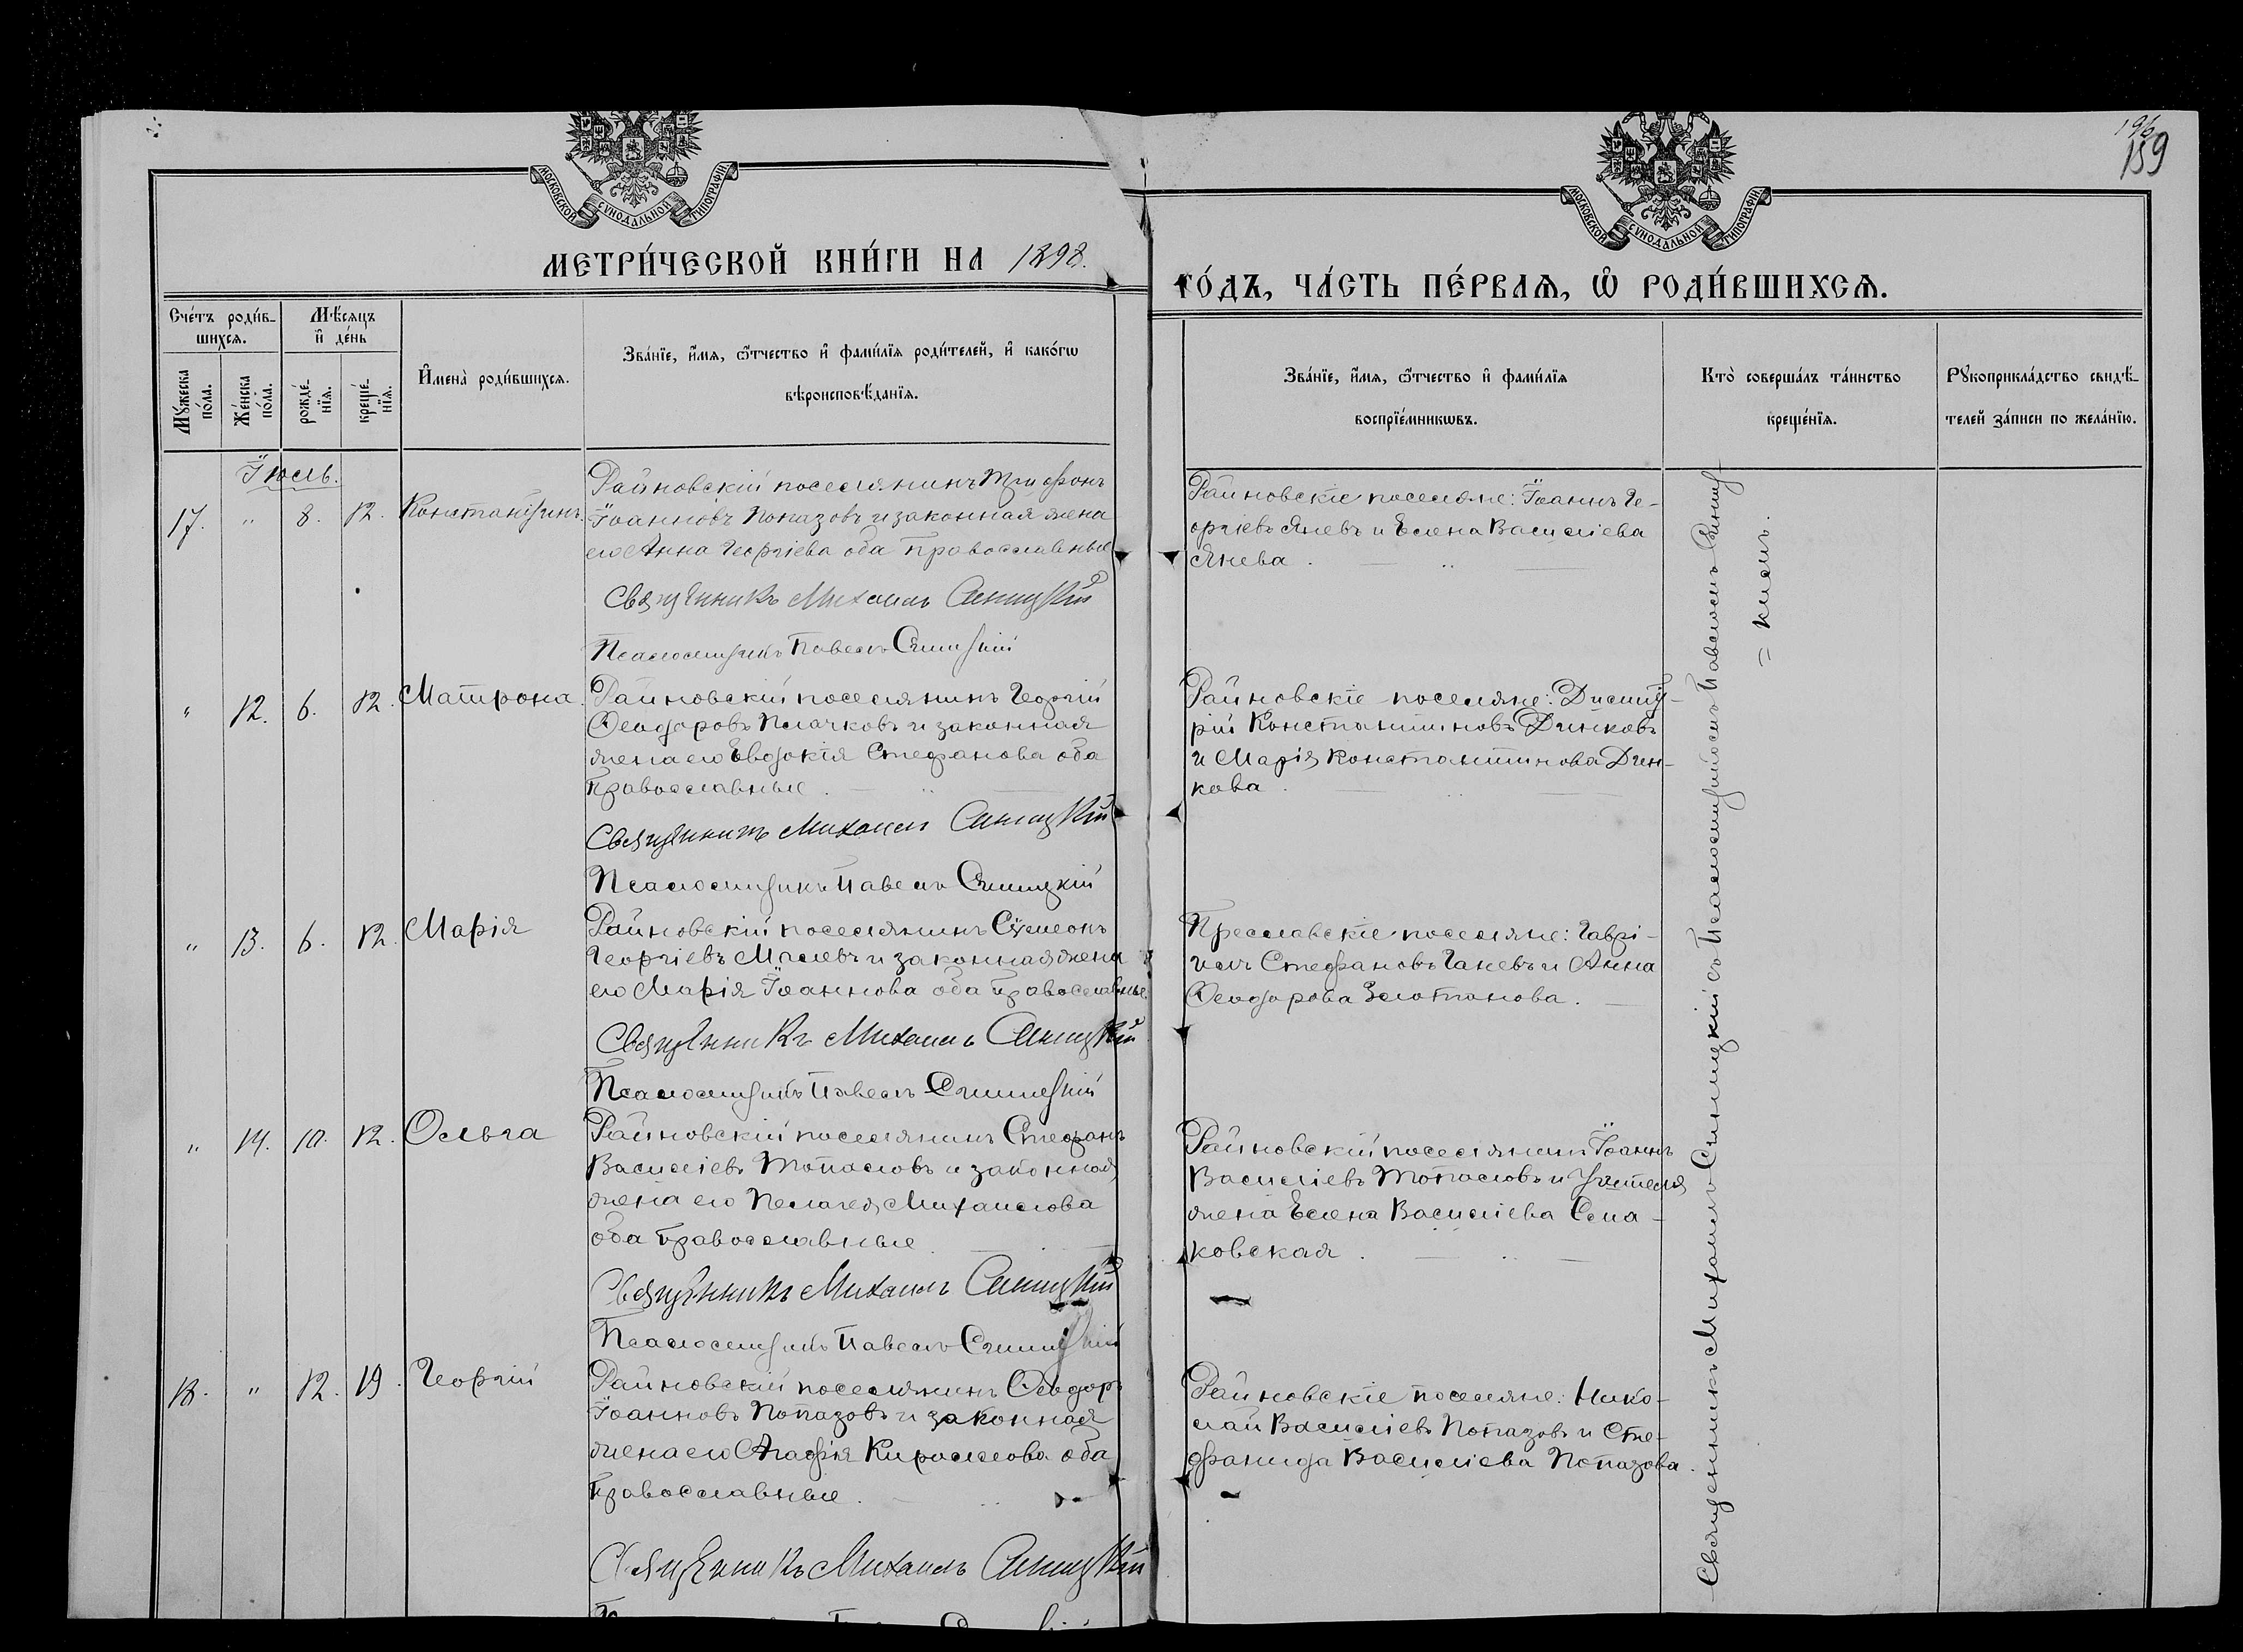 196
159
МОСКОВСКОЙ СѴНОДАЛЬНОЙ ТИПОГРАФІИ
МОСКОВСКОЙ СѴНОДАЛЬНОЙ ТИПОГРАФІИ
МЕТРИ́ЧЕСКОЙ КНИ́ГИ НА 1898.
ГО́ДЪ, ЧА́СТЬ ПЕ́РВАѦ, Ѡ҆ РОДИ́ВШИХСѦ.
Сче́тъ роди́в-
шихсѧ.
Мѣ́сѧцъ
и҆ де́нь
Мꙋ́жеска по́ла.
Же́нска по́ла.
рожде́-
нїѧ.
креще́-
нїѧ.
И҆мена̀ роди́вшихсѧ.
Зва́нїе, и҆́мѧ, ѻ҆́тчество и҆ фами́лїѧ роди́телей, и҆ како́гѡ
вѣроисповѣ́данїѧ.
Зва́нїе, и҆́мѧ, ѻ҆́тчество и҆ фами́лїѧ
воспрїе́мникѡвъ.
Кто̀ соверша́лъ та́инство
креще́нїѧ.
Рꙋкоприкла́дство свидѣ́-
телей за́писи по жела́нїю.
Іюль.
17. " 8. 12. Константинъ.
Райновскій поселянинъ Трифонъ
Іоанновъ Попазовъ и законная жена
его Анна Георгіева оба православные
Священникъ Михаилъ Синицкій
Псаломщикъ Павелъ Синицкій
Райновскіе поселяне: Іоаннъ Ге-
оргіевъ Яневъ и Елена Василіева
Янева.
" 12. 6. 12. Матрона.
Райновскій поселянинъ Георгій
Ѳеодоровъ Плачковъ и законная
жена его Евдокія Стефанова оба
православные.
Священникъ Михаилъ Синицкій
Псаломщикъ Павелъ Синицкій
Райновскіе поселяне: Димит-
рій Константиновъ Динковъ
и Марія Константинова Дин-
кова.
" 13. 6. 12. Марія
Райновскій поселянинъ Сѵмеонъ
Георгіевъ и законная жена
его Марія Іоаннова оба православные.
Священникъ Михаилъ Синицкій
Псаломщикъ Павелъ Синицкій
Преславскіе поселяне: Гаврі-
илъ Стефановъ Ганевъ и Анна
Ѳеодорова Золотанова.
" 14. 10. 12. Ольга
Райновскій поселянинъ Стефанъ
Василіевъ Топаловъ и законная
жена его Пелагея Михаилова
оба православные.
Священникъ Михаилъ Синицкій
Псаломщикъ Павелъ Синицкій
Райновскій поселянинъ Іоаннъ
Василіевъ Топаловъ и Учителя
жена Елена Василіева
ковская.
18. " 12. 19. Георгій
Райновскій поселянинъ Ѳеодоръ
Іоанновъ Попазовъ и законная
жена его Агафія Кириллова оба
православные.
Священникъ Михаилъ Синицкій
Райновскіе поселяне: Нико-
лай Василіевъ Попазовъ и Сте-
фанида Василіева Попазова.
Священникъ Михаилъ Синицкій съ Псаломщикомъ Павломъ Синиц-
= кимъ.